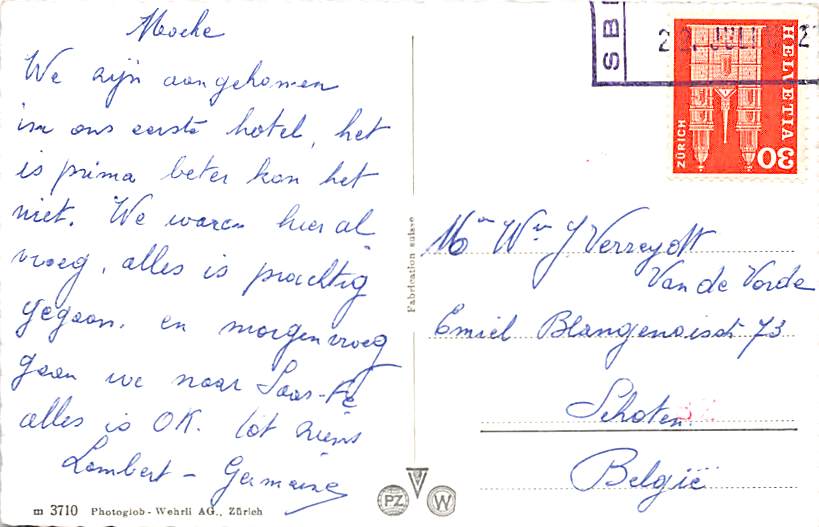 Moeke
We zijn aangekomen
in ons eerste hotel, het
is prima beter kan het
niet. We waren hier al
vroeg, alles is prachtig
gegaan, en morgenvroeg
gaan we naar Saas-Fé
alles is OK. Tot ziens
Lambert - Germaine
m 3710 Photoglob - Wehrli AG., Zürich
Fabrication suisse
PZ W
SB
JULI
HELVETIA
ZÜRICH
30
Mᵐ Wᵉ J. Verreydt
Van de Vorde
Emiel Blangenoisstr 73
Schoten
België